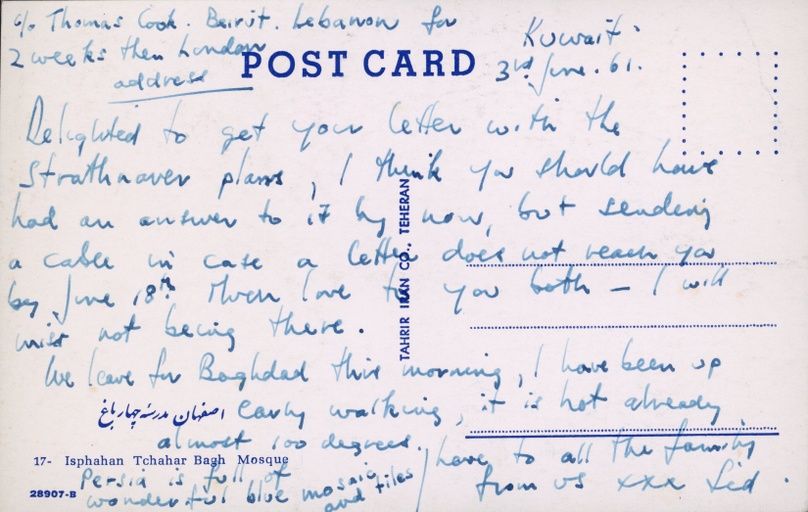 c/o Thomas Cook. Beirut. Lebanon for
2 weeks then London
address
POST CARD
Kuwait.
3rd June. 61.
Delighted to get your letter with the
Strathnaver plans, I think you should have
had an answer to it by now, but sending
a cable in case a letter does not reach you
by June 18th. Much love to you both – I will
miss not being there.
We leave for Baghdad this morning, I have been up
early walking, it is hot already
almost 100 degrees.
TAHRIR IRAN CO., TEHERAN
اصفهان مدرسه چهار باغ
17- Isphahan Tchahar Bagh Mosque
28907-B
Persia is full of
wonderful blue mosaic and tiles
love to all the family
from us xxx Sid.